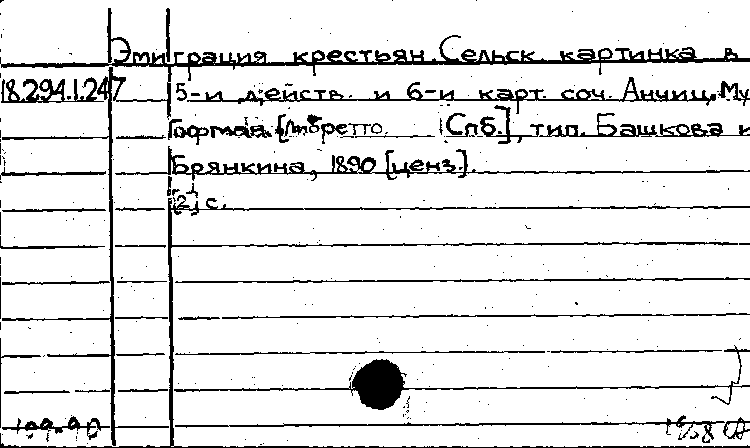 Эмиграция крестьян. Сельск. картинка в
18.294.1.247 5-и действ. и 6-и карт. соч. Анчиц. Му
Гофман. [Либретто. [Спб.], тип. Башкова и
Брянкина, 1890 [ценз.].
[2] с.
199-90